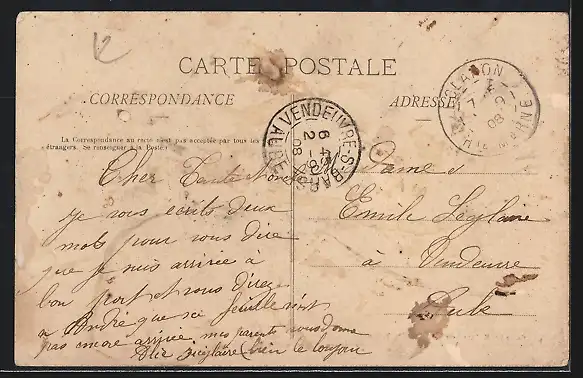 CARTE POSTALE
CORRESPONDANCE
ADRESSE
La Correspondance au recto n'est pas acceptée par tous les
étrangers. Se renseigner à la Poste)
VENDEUVRE-S-BARSE
AUBE
6 45
2 -9
08
BLAMON
HTE MARNE
7
9
08
Cher Tante &
je vous écrits deux
mots pour vous dire
que je suis arrivée a
bon port et vous direz
a André que sa feuille n'est
pas encore arrivée mes parents vous donne
bien le bonjour
Dame
Emile
à Vendeuvre
Aube